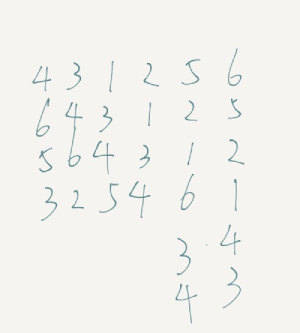 4 3 1 2 5 6
6 4 3 1 2 5
5 6 4 3 1 2
3 2 5 4 6 1
3 4
4 3